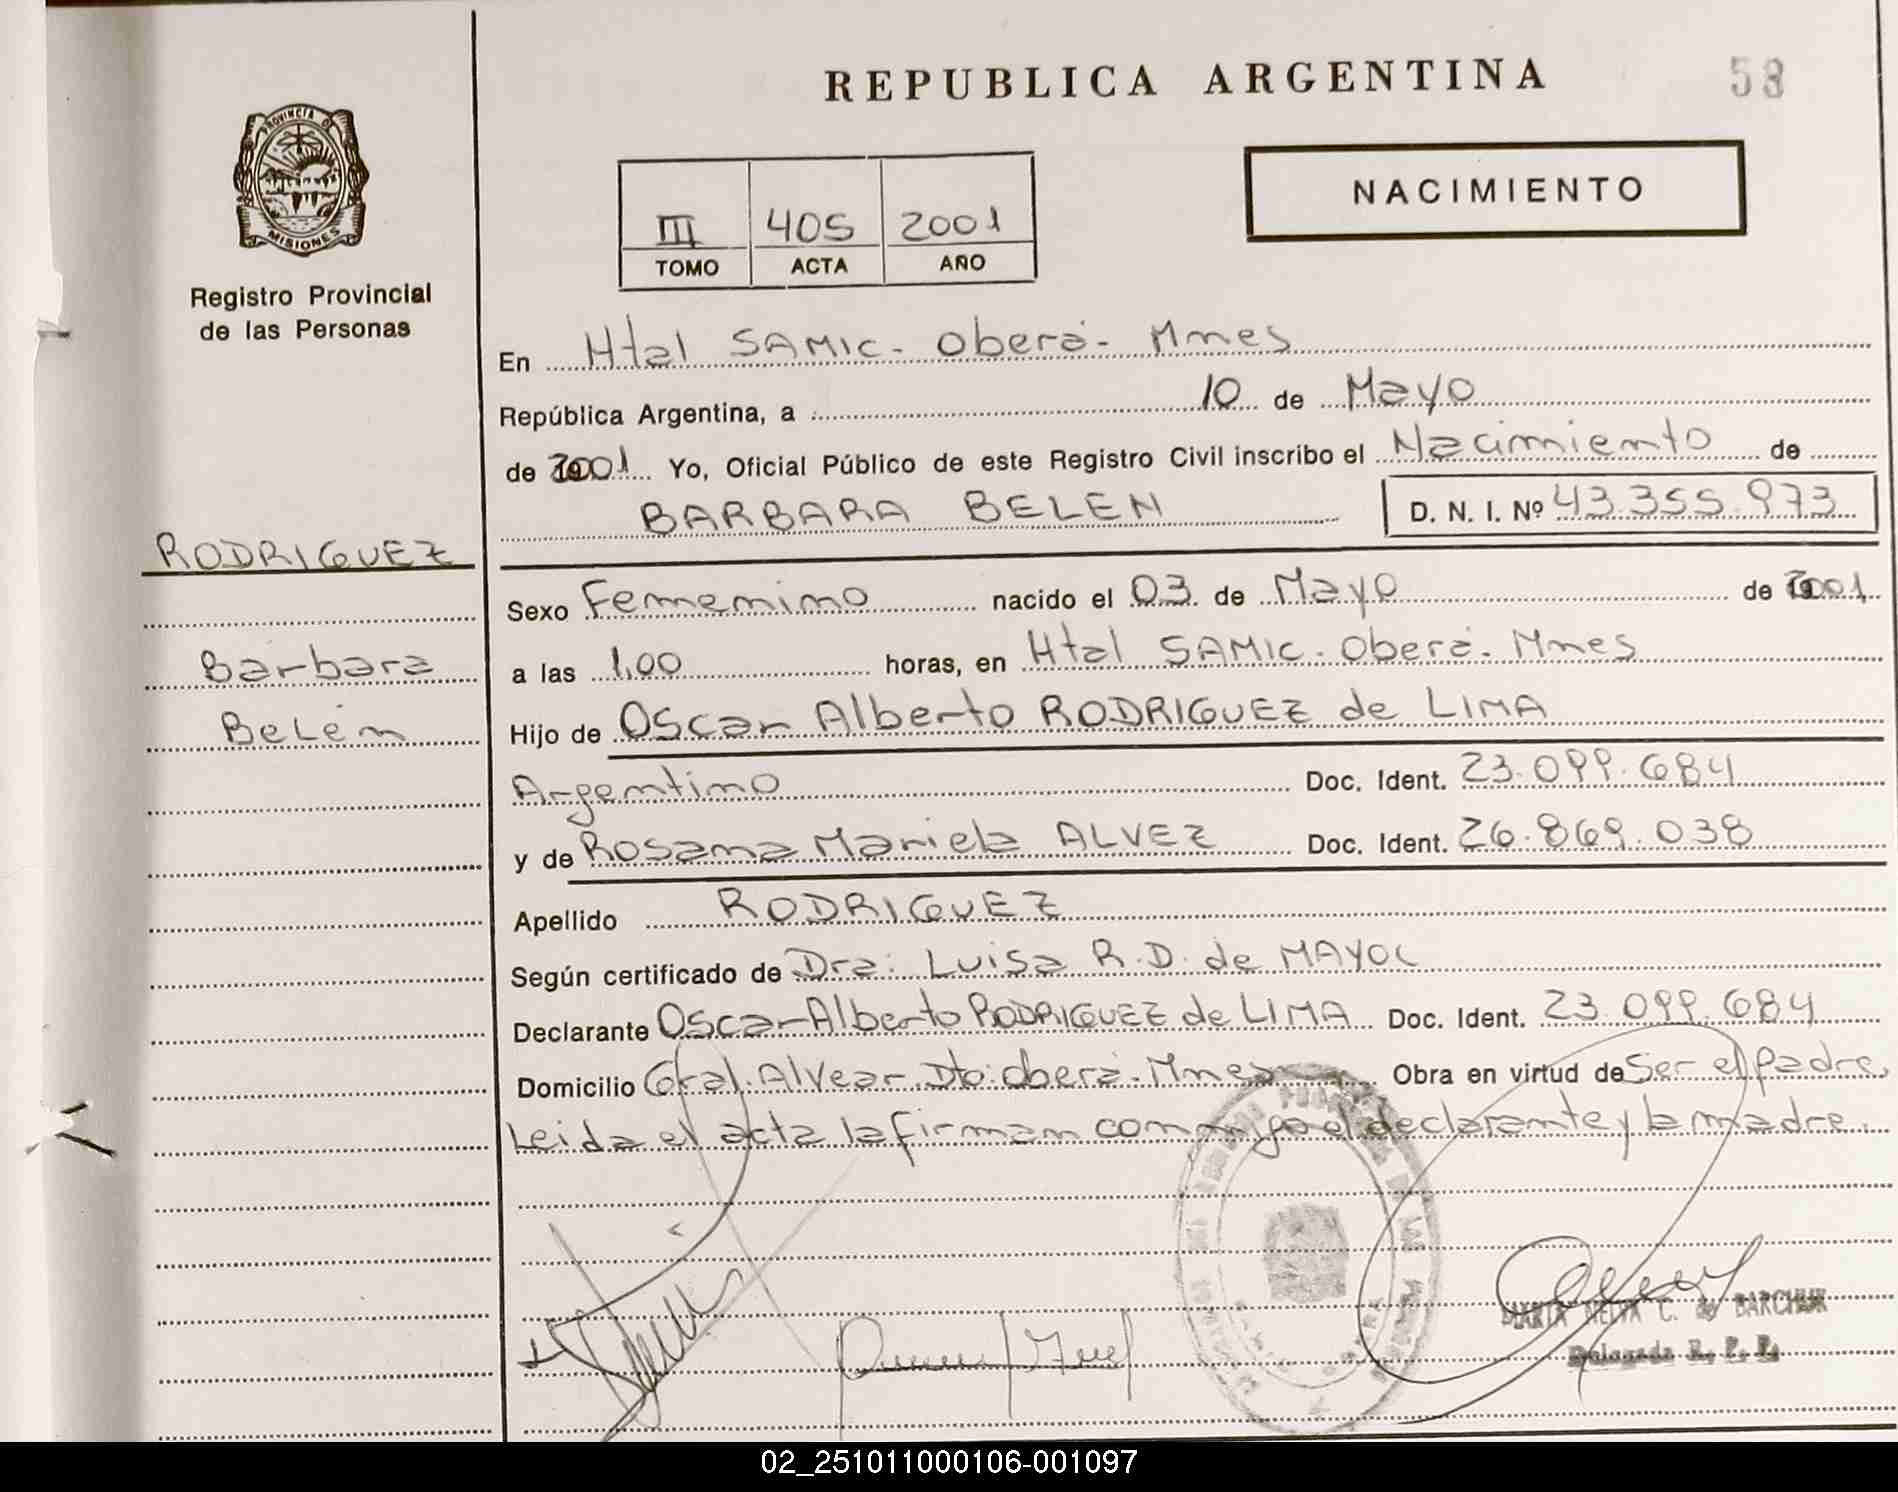 REPUBLICA ARGENTINA
53
PROVINCIA DE
MISIONES
Registro Provincial
de las Personas
NACIMIENTO
III 405 2001
TOMO ACTA AÑO
En Htal SAMIC - Oberá - Mnes
República Argentina, a 10 de Mayo
de 2001 Yo, Oficial Público de este Registro Civil inscribo el Nacimiento de
BARBARA BELEN D. N. I. Nº 43.355.973
RODRIGUEZ
Bárbara
Belén
Sexo Femenino nacido el 03 de Mayo de 2001
a las 1,00 horas, en Htal SAMIC. Oberá. Mnes
Hijo de Oscar Alberto RODRIGUEZ de LIMA
Argentino Doc. Ident. 23.099.684
y de Rosana Mariela ALVEZ Doc. Ident. 26.869.038
Apellido RODRIGUEZ
Según certificado de Dra: Luisa R. D. de MAYOL
Declarante Oscar Alberto RODRIGUEZ de LIMA Doc. Ident. 23.099.684
Domicilio Gral. Alvear. Dto: Oberá. Mnes Obra en virtud de Ser el padre.
Leida el acta la firman conmigo el declarante y la madre.
MARIA NELVA C. de BARCHUK
Delegada R. P. P.
02_251011000106-001097